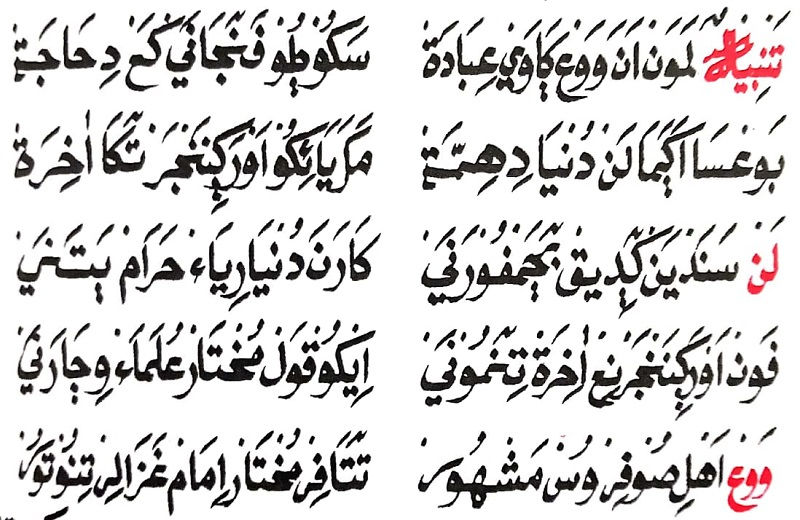 تَنْبِيهٌ لَمَوْنْ اَنَ وَوڠ ڮَاوَيْ عِبَادَةْ سَكُوْطُو فَنْجَانَيْ كَڠ دِحَاجَةْ
بَوڠسَا اَڮَمَا لَنْ دُنْيَا دِهِمَّةْ مَڠكَ يَائِكُوْ اَوْرَ ڮَنْجَرَنْ تَكَا اٰخِرَةْ
لَنْ سَنَدْيَنْ ڮَدَيْق چَمْفُوْرَنَيْ كَارَنَ دُنْيَا رِيَاء حَرَامْ پَتَنَيْ
فَوْن اَوْرَ ڮَنْجَرَنْ اِڠ اٰخِرَةْ تِنَمُوْنَيْ اِيْكُوْ قَوْل مُخْتَارْ عُلَمَاء وِچَارَنَيْ
وَوڠ اَهْلِ صُوْفِيْ وُسْ مَشْهُوْرْ تَتَافِيْ مُخْتَارْ اِمَامْ غَزَالِيْ تِنُوْتُوْرْ